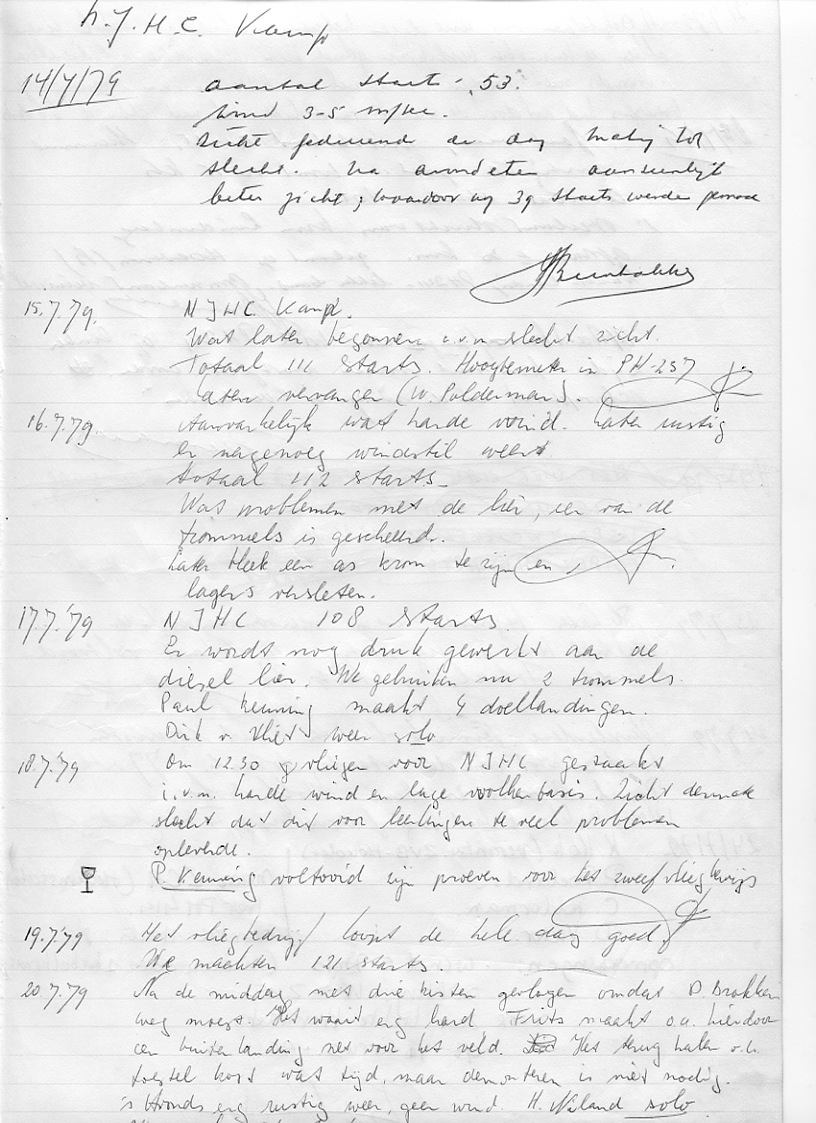 N.J.H.C. Kamp
14/7/79 aantal starts: 53.
wind 3-5 m/sec.
zicht gedurende de dag matig tot
slecht. Na avondeten aanzienlijk
beter zicht, waardoor nog 39 starts werden gemaakt
15.7.79. NJHC Kamp.
Wat later begonnen i.v.m slecht zicht.
Totaal 111 starts. Hoogtemeter in PH-257
laten vervangen (W. Polderman).
16.7.79. Aanvankelijk wat harde wind. Later rustig
en nagenoeg windstil weer.
totaal 112 starts.
Wat problemen met de lier, een van de
trommels is gescheurd.
Later bleek een as krom te zijn en
lagers versleten.
17.7.'79 NJHC 108 starts.
Er wordt nog druk gewerkt aan de
diesel lier. We gebruiken nu 2 trommels.
Paul Kenning maakt 4 doellandingen.
Dirk v. Vliet weer solo
18.7.'79 Om 12.30 vliegen voor NJHC gestaakt
i.v.m. harde wind en lage wolkenbasis. Zicht dermate
slecht dat dit voor leerlingen te veel problemen
opleverde.
P. Kenning voltooid zijn proeven voor het zweefvliegbewijs
19.7.'79 Het vliegbedrijf loopt de hele dag goed
We maakten 121 starts.
20.7.79 Na de middag met drie kisten gevlogen omdat D. Brokken
weg moest. Het waait erg hard. Frits maakt o.a. hierdoor
een buitenlanding net voor het veld. Het terug halen v.h.
toestel kost wat tijd, maar demonteren is niet nodig.
's Avonds erg rustig weer, geen wind. H. Nijland solo.